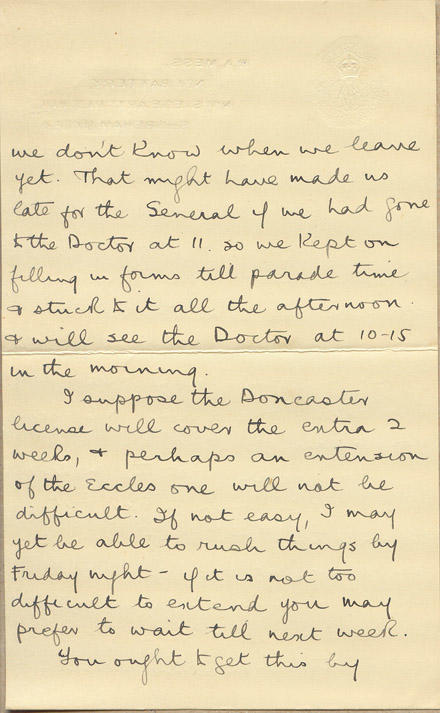 R.A. MESS.
we don't know when we leave
yet. That might have made us
late for the General if we had gone
to the Doctor at 11. so we kept on
filling in forms till parade time
& stuck to it all the afternoon.
& will see the Doctor at 10-15
in the morning.
I suppose the Doncaster
license will cover the extra 2
weeks, & perhaps an extension
of the Eccles one will not be
difficult. If not easy, I may
yet be able to rush things by
Friday night - if it is not too
difficult to extend you may
prefer to wait till next week.
You ought to get this by